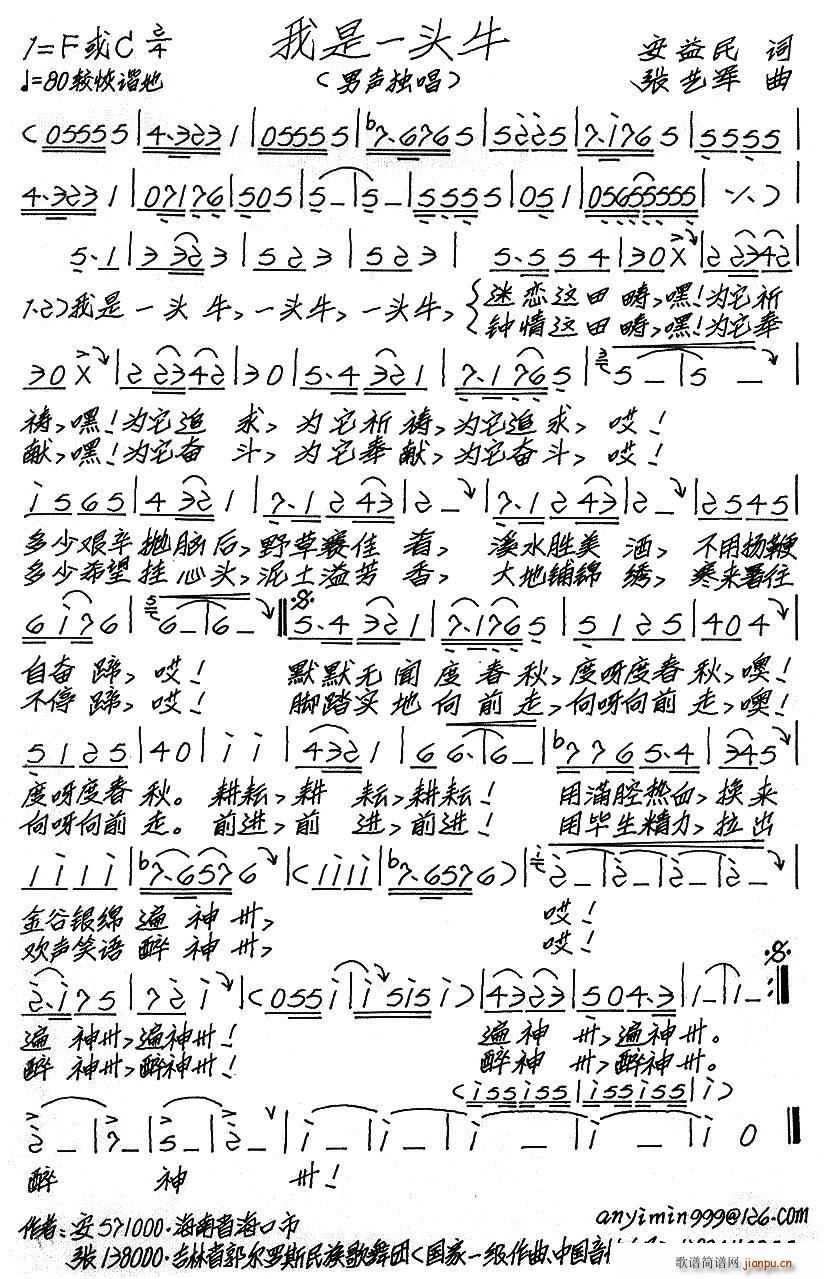 我是一头牛
1=F或C 2/4
安益民 词
♩=80较诙谐地
(男声独唱)
张艺军 曲
(05555|4·3231|055555|♭7·6765|5225|7·1765|5555|
4·3231|07176|505|5–|5–|5555|051|05655555|·/·)|
5·1|3323|523|523|5·554|30X|22342|
1.2)我是一头牛,一头牛,一头牛,
迷恋这田畴,嘿!为它祈
钟情这田畴,嘿!为它奉
30X|22342|30|5·4321|7·1765|5–|5–|
祷,嘿!为它追求,为它祈祷,为它追求,哎!
献,嘿!为它奋斗,为它奉献,为它奋斗,哎!
i565|4321|7·1243|2–|7·1243|2–|2545|
多少艰辛抛脑后,野草赛佳肴,溪水胜美酒,不用扬鞭
多少希望挂心头,泥土溢芳香,大地铺锦绣,寒来暑往
6i76|6–|6–‖5·4321|7·1765|5125|404|
自奋蹄,哎!默默无闻度春秋,度呀度春秋,噢!
不停蹄,哎!脚踏实地向前走,向呀向前走,噢!
5125|40|ii|4321|66·|6–|♭7765·4|345|
度呀度春秋。耕耘,耕耘,耕耘!用满腔热血,换来
向呀向前走。前进,前进,前进!用毕生精力,拉出
1i1i|♭7·6576|(1i1i|♭7·6576)|2–|2–|2–|2–|
金谷银绵遍神州,哎!
欢声笑语醉神州,哎!
2·i75|72i|(055i|i5i5i)|4323|504·3|1–|1–:‖
遍神州,遍神州!遍神州,遍神州。
醉神州,醉神州!醉神州,醉神州。
(i55i55|i55i55|i)
2–|7–|5–|2–|i–|i–|–|i–|i0‖
醉神州!
作者:安571000·海南省海口市
anyimin999@126.com
张138000·吉林省郭尔罗斯民族歌舞团(国家一级作曲、中国音
歌谱简谱网
jianpu.cn